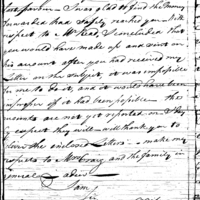 I was glad to find the Money
forwarded had safely reached you with
respect to Mr Read I concluded that
you would have made up and sent on
his account after you had received my
Letter on the subject, it was impossible
for me to do it, and it would have been
improper if it had been possible the
accounts are not yet reported on
I expect they will will thank you to
the enclosed Letters make my
respects to Mrs Craig and the Family in
general Adieu
I am